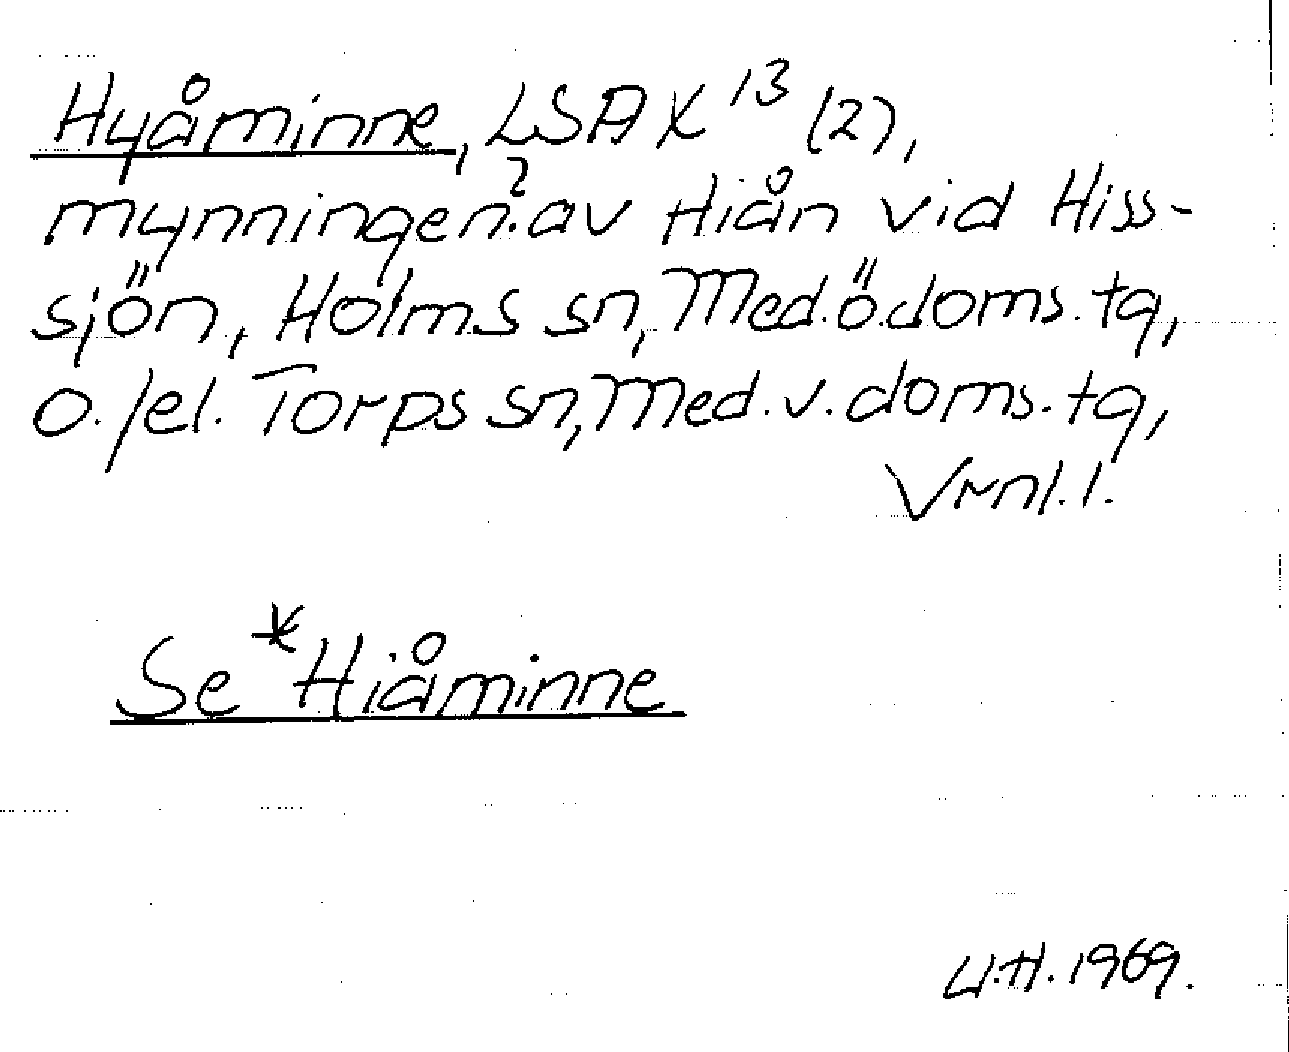 Hyåminne, LSA X¹³ (2),
mynningen? av Hiån vid Hiss-
sjön, Holms sn, Med. ö. doms. tg,
o./el. Torps sn, Med. v. doms. tg,
Vrnl. l.
Se *Hiåminne
U.H. 1969.